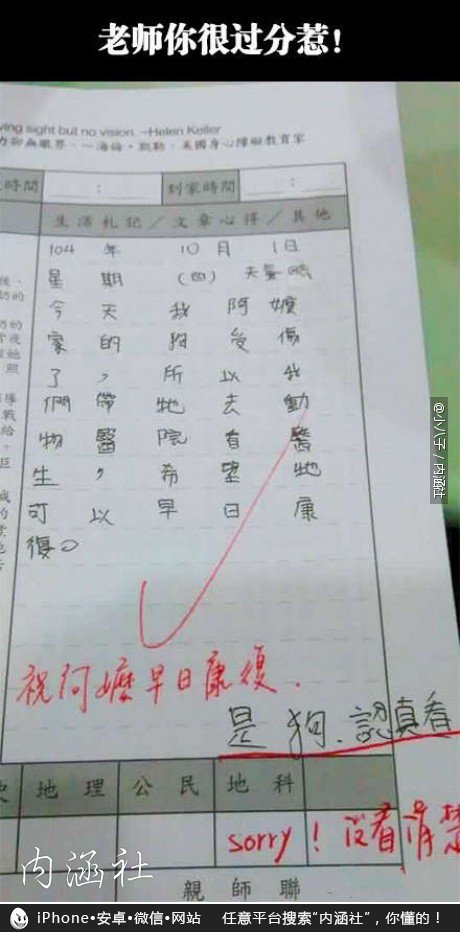 老师你很过分惹!
ving sight but no vision. ~Helen Keller
力卻無眼界。~海倫‧凱勒，美國身心障礙教育家
時間 : 到家時間 :
生活札記／文章心得／其他
104年10月1日
星期(四) 天氣晴
今天我阿嬤
家的狗受傷
了，所以我
們帶牠去動
物醫院看醫
生，希望牠
可以早日康
復。
祝阿嬤早日康復.
是狗.認真看
地理 公民 地科
sorry!沒看清楚
親師聯
@小八子/内涵社
内涵社
iPhone•安卓•微信•网站 任意平台搜索“内涵社”，你懂的！